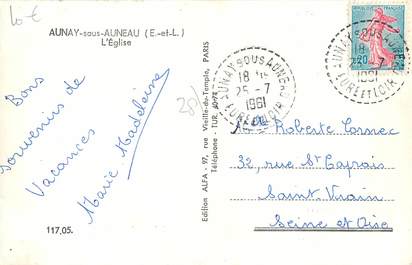 10 €
AUNAY-sous-AUNEAU (E.-et-L.)
L'Église
Bons
souvenirs de
Vacances
Marie Madeleine
117.05.
Edition ALFA - 97, rue Vieille-du-Temple, PARIS
Téléphone : TUR.
AUNAY SOUS AUNEAU
18
25 - 7
1961
EURE ET LOIR
AUNAY SOUS AUNEAU
18
25 - 7
1961
EURE ET LOIR
Roberte Cornec
32, rue St Caprais
Saint. Vrain
Seine et Oise